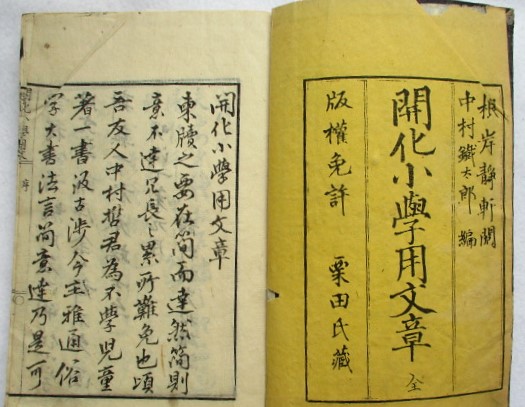 根岸靜軒閲
中村鐵太郎編
開化小學用文章 全
版權免許 栗田氏藏
開化小學用文章
柬牘之要在簡而達然簡則
意不達冗長之累所難免也頃
吾友人中村哲君為不學児童
著一書汲古渉今主雅通俗
字大書法言簡意達乃是可